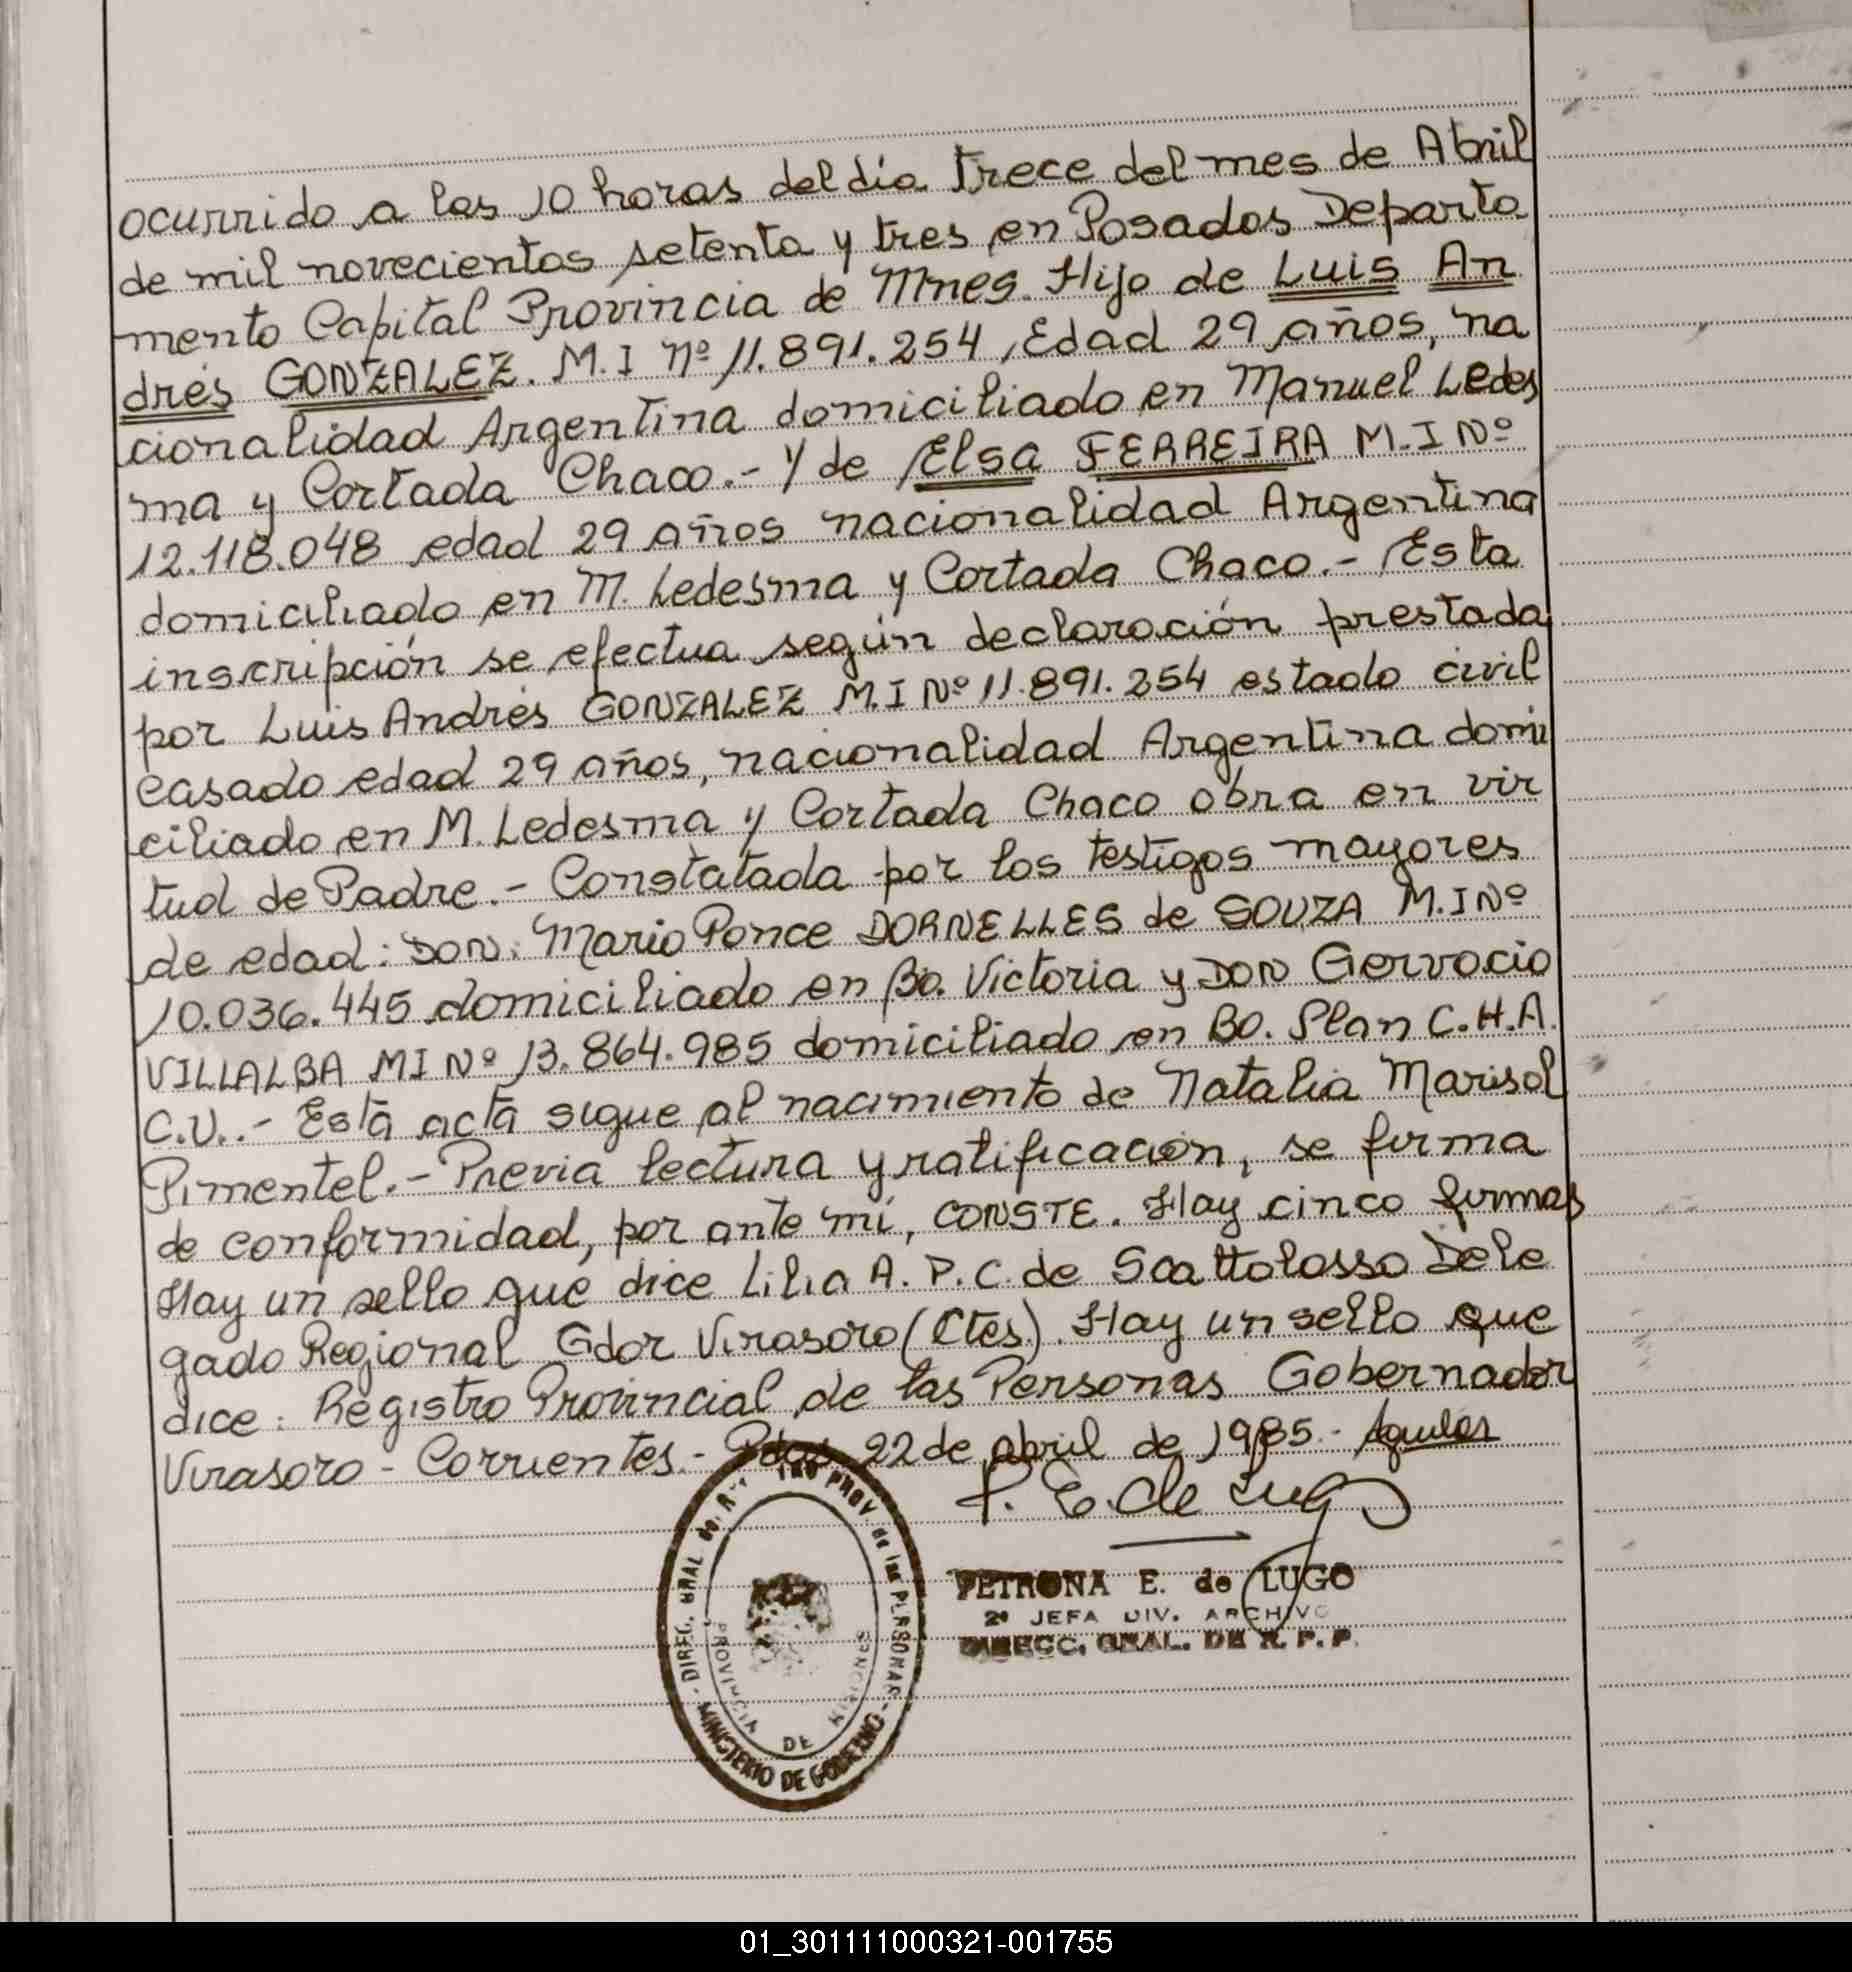 ocurrido a las 10 horas del día trece del mes de Abril
de mil novecientos setenta y tres en Posadas Departa
mento Capital Provincia de Mnes. Hijo de Luis An
drés GONZALEZ. M.I Nº 11.891.254, Edad 29 años, na
cionalidad Argentina domiciliado en Manuel Ledes
ma y Cortada Chaco.- Y de Elsa FERREIRA M.I Nº
12.118.048 edad 29 años nacionalidad Argentina
domiciliado en M. Ledesma y Cortada Chaco.- Esta
inscripción se efectua según declaración prestada
por Luis Andrés GONZALEZ M.I Nº 11.891.254 estado civil
casado edad 29 años, nacionalidad Argentina domi
ciliado en M. Ledesma y Cortada Chaco obra en vir
tud de Padre.- Constatada por los testigos mayores
de edad: DON: Mario Ponce DORNELLES de SOUZA M.I Nº
10.036.445 domiciliado en Bo. Victoria y DON Gervacio
VILLALBA MI Nº 13.864.985 domiciliado en BO. Plan C.H.A.
C.V..- Esta acta sigue al nacimiento de Natalia Marisol
Pimentel.- Previa lectura y ratificación, se firma
de conformidad, por ante mí, CONSTE. Hay cinco firmas
Hay un sello que dice Lilia A. P. C. de Scattolosso Dele
gado Regional Gdor Virasoro (Ctes). Hay un sello que
dice: Registro Provincial de las Personas Gobernador
Virasoro - Corrientes.- Pdas 22 de abril de 1985.- Aguilar
P. E. de Lugo
DIREC. GRAL de PROV de las PERSONAS - MINISTERIO DE GOBIERNO -
PROVINCIA DE MISIONES
PETRONA E. de LUGO
2ª JEFA DIV. ARCHIVO
DIRECC. GRAL. DE R. P. P.
01_301111000321-001755